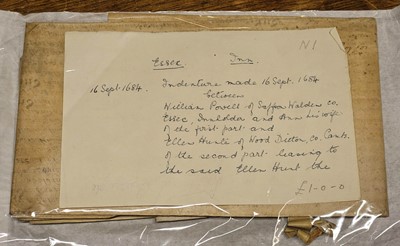 N1
Essex Inn
16 Sept. 1684. Indenture made 16 Sept. 1684
between
William Powell of Saffron Walden co.
Essex, Innholder and Ann his wife
of the first part and
Ellen Hunt of Wood Ditton, co. Cambs.
of the second part leasing to
the said Ellen Hunt the
£1-0-0